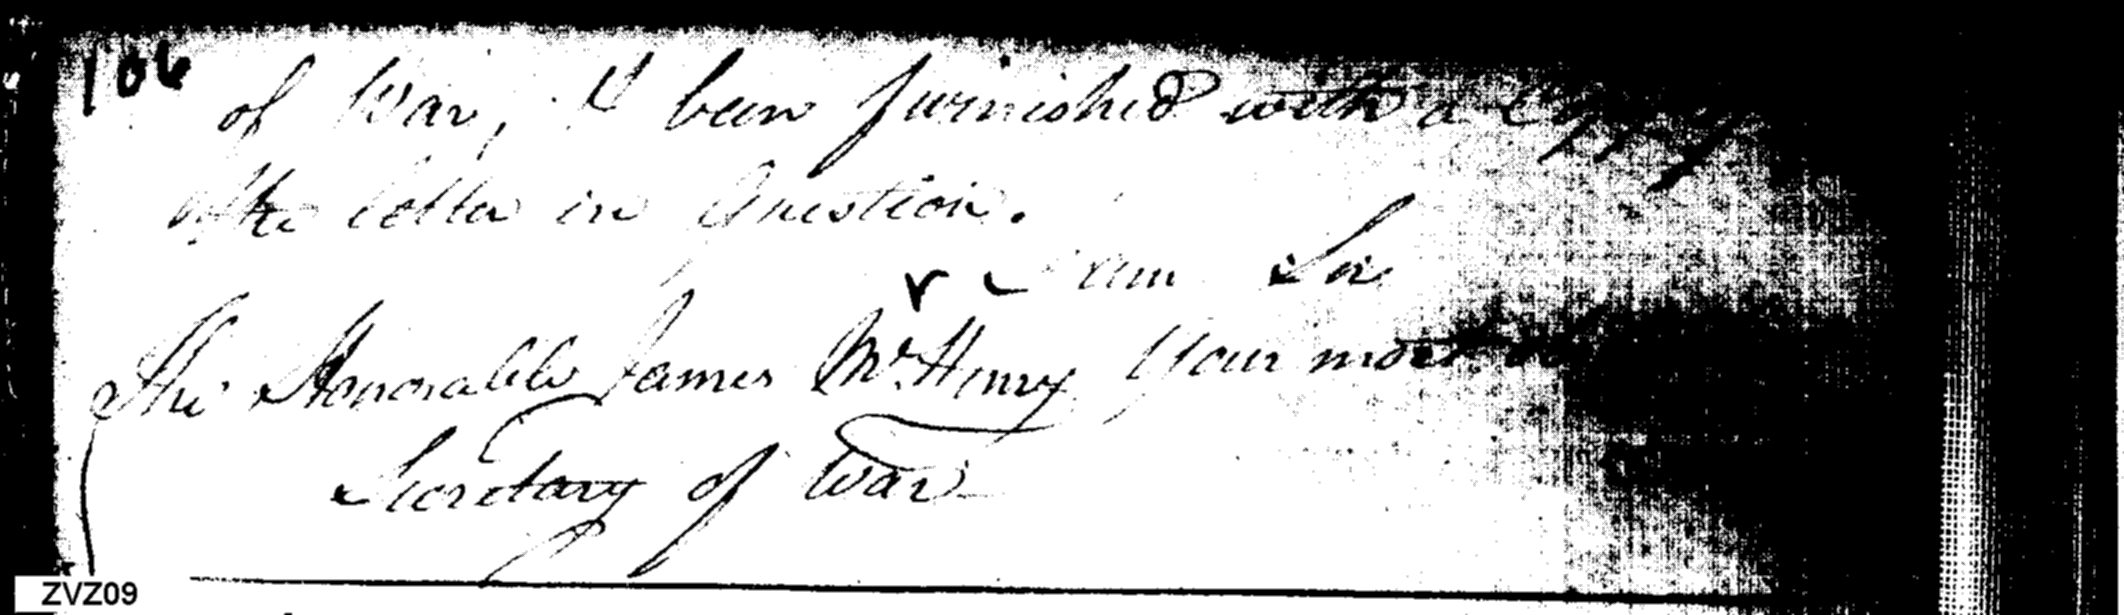 106
of War, I been furnished with a Copy
of the letter in Question.
I am Sir
The Honorable James McHenry Your most
Secretary of War
ZVZ09